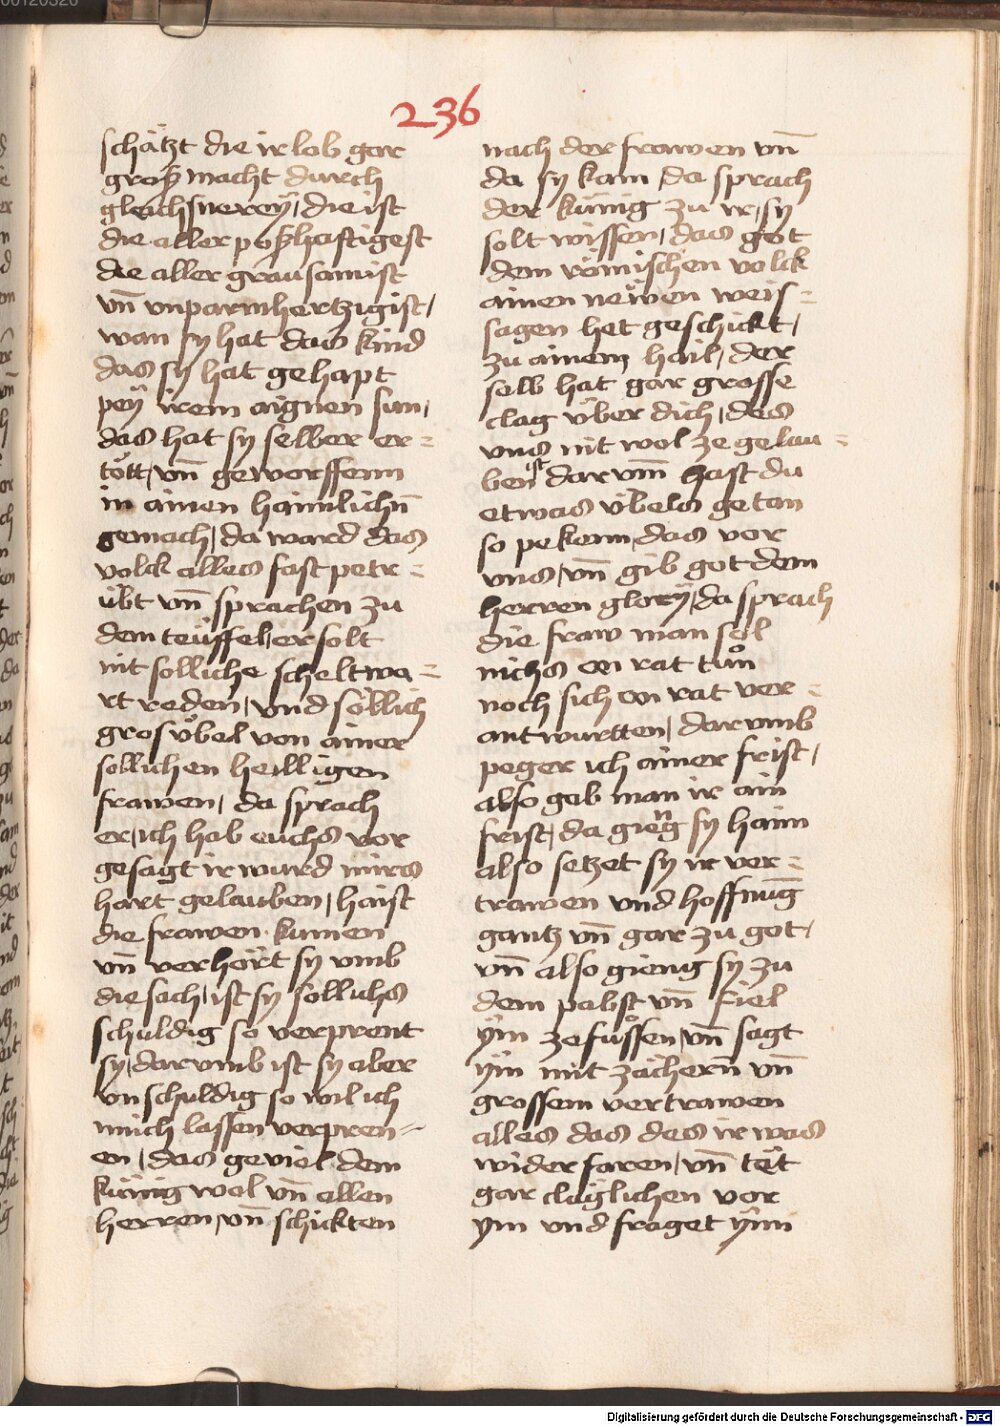 236
schätzt die ir lob gar
groß macht durch
gleichsnereÿ / die ist
die aller poßhaftigest
die aller grausamist
vn̄ vnparmhertzigist /
wan sy hat das kind
das sy hat gehapt
peÿ irem aignen sun /
das hat sy selber er =
tött / vn̄ geworffenn
in ainen haimlichn̄
gemach / da ward das
volck alles fast petr =
übt vn̄ sprachen zu
dem teüffel / er solt
nit solliche scheltwo =
rt reden / vnd söllich
gros vbel von ainer
sollichen heilligen
frawen / da sprach
er / ich hab euchs vor
gesagt ir wurd mirs
hart gelauben / haist
die frawen kumen
vn̄ verhört sy vmb
die sach / ist sy sollichs
schuldig so verprent
sy / dar vmb ist sy aber
vnschuldig so wil ich
mich lassen verpren =
en / das geviel dem
künig wol vn̄ allen
herren / vn̄ schickten
nach der frawen vn̄
da sy kam / da sprach
der künig zu ir / sy
solt wissen / das got
dem römischen volck
ainen newen weis =
sagen het geschickt /
zu ainem hail / der
selb hat gar grosse
clag über dich / des
vns nit wol ze gelau =
ben ist dar vm̄ hast du
etwas übels getan
so pekenn das vor
vns / vn̄ gib got dem
herren glorÿ / da sprach
die fraw man sol
nichs on rat tůn
noch sich on rat ver =
antwurtten / dar vmb
peger ich ainer frist /
also gab man ir ain
frist / da gieng sy haim
also setzet sy ir ver =
trawen vnd hoffnūg
gantz vn̄ gar zu got /
vn̄ also gieng sy zu
dem pabst vn̄ fiel
ÿm ze fůssen / vn̄ sagt
ÿm mit zächern̄ vn̄
grossem vertrawen
alles das des ir was
widerfaren / vn̄ tët
gar cläglichen vor
ym vnd fraget ÿnn
Digitalisierung gefördert durch die Deutsche Forschungsgemeinschaft - DFG